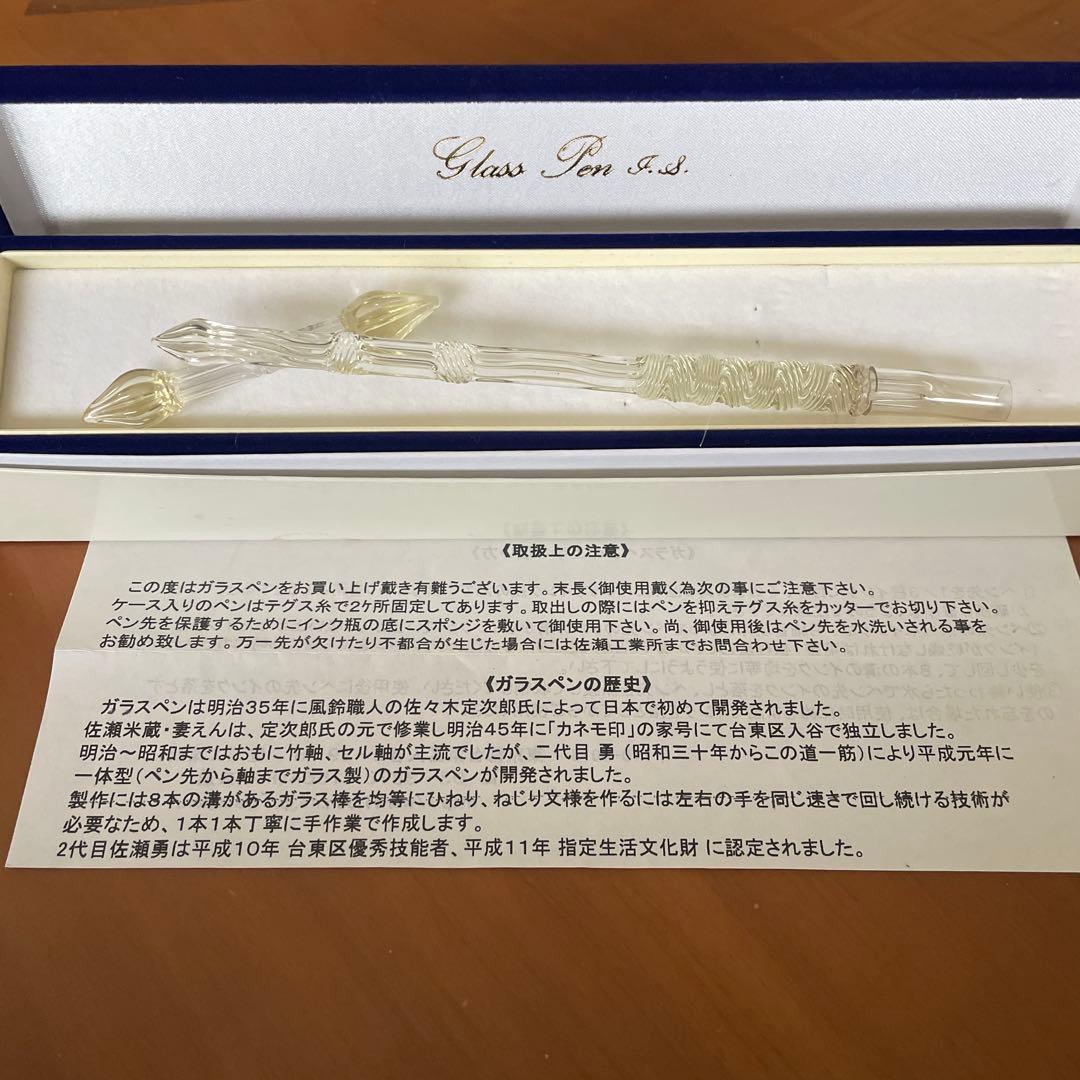 Glass Pen I.S.
《取扱上の注意》
この度はガラスペンをお買い上げ戴き有難うございます。末長く御使用戴く為次の事にご注意下さい。
ケース入りのペンはテグス糸で2ケ所固定してあります。取出しの際にはペンを抑えテグス糸をカッターでお切り下さい。
ペン先を保護するためにインク瓶の底にスポンジを敷いて御使用下さい。尚、御使用後はペン先を水洗いされる事を
お勧め致します。万一先が欠けたり不都合が生じた場合には佐瀬工業所までお問合わせ下さい。
《ガラスペンの歴史》
ガラスペンは明治35年に風鈴職人の佐々木定次郎氏によって日本で初めて開発されました。
佐瀬米蔵・妻えんは、定次郎氏の元で修業し明治45年に「カネモ印」の家号にて台東区入谷で独立しました。
明治～昭和まではおもに竹軸、セル軸が主流でしたが、二代目 勇（昭和三十年からこの道一筋）により平成元年に
一体型（ペン先から軸までガラス製）のガラスペンが開発されました。
製作には8本の溝があるガラス棒を均等にひねり、ねじり文様を作るには左右の手を同じ速さで回し続ける技術が
必要なため、1本1本丁寧に手作業で作成します。
2代目佐瀬勇は平成10年 台東区優秀技能者、平成11年 指定生活文化財 に認定されました。